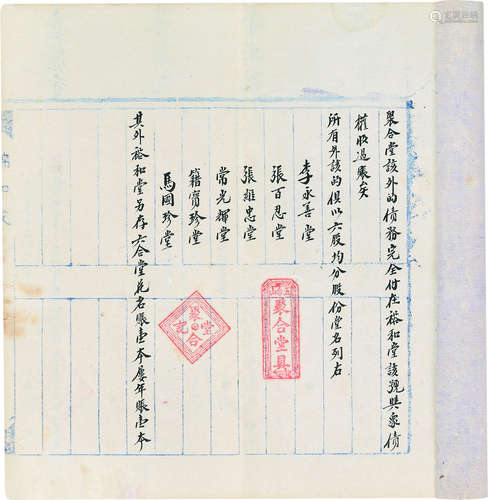 聚合堂該外的債務完全付在裕和堂該號與眾債
權收過賬矣
所有外該的俱以六股均分股份堂名列右
李永善堂
張百忍堂
張維忠堂
常光輝堂
籍寶珍堂
馬國珍堂
其外裕和堂另存六合堂花名賬壹本屡年賬壹本
聚合堂具
聚合堂記